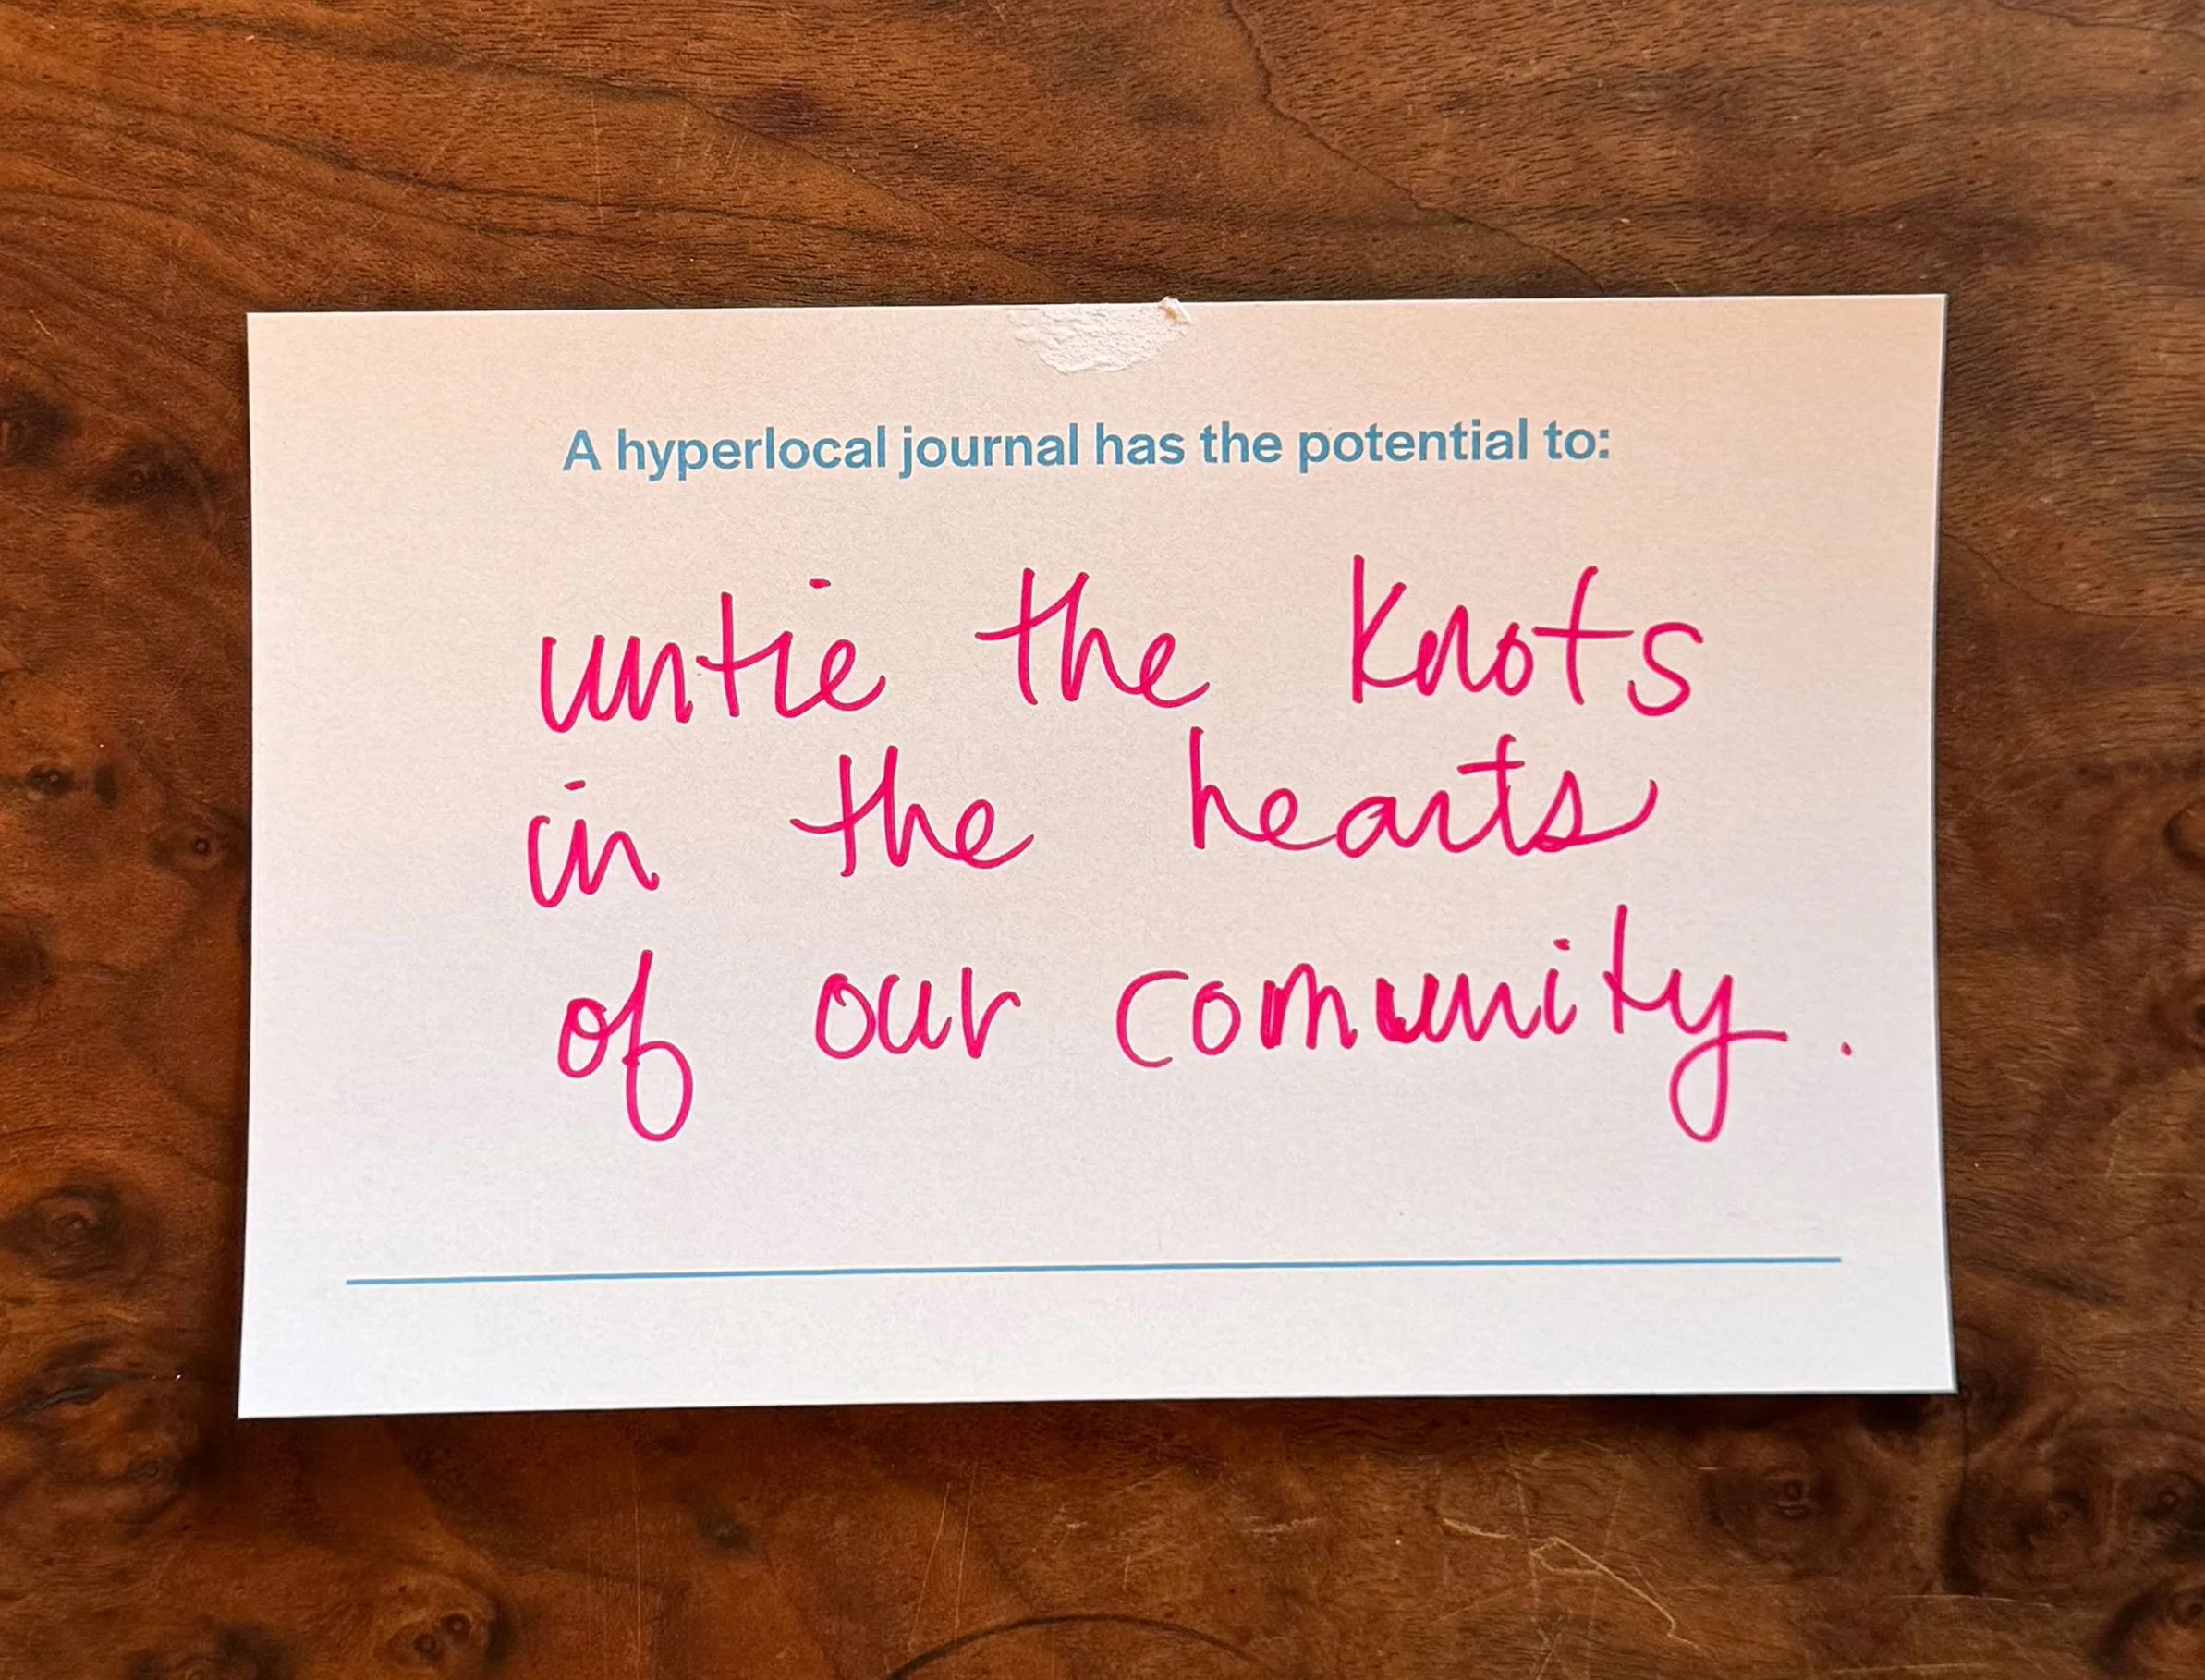 A hyperlocal journal has the potential to:
untie the knots
in the hearts
of our comunity.